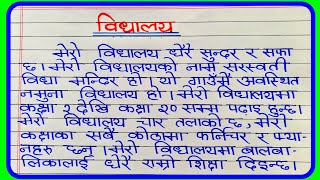 विद्यालय
मेरो विद्यालय धेरै सुन्दर र सफा
छ। मेरो विद्यालयको नाम सरस्वती
विद्या मन्दिर हो। यो गाउँमै अवस्थित
नमुना विद्यालय हो। मेरो विद्यालयमा
कक्षा १ देखि कक्षा १० सम्म पढाइ हुन्छ।
मेरो विद्यालय चार तलाको छ, मेरो
कक्षाका सबै कोठामा फर्निचर र प्या-
नहरु छन्। मेरो विद्यालयमा बालबा-
लिकालाई धेरै राम्रो शिक्षा दिइन्छ।